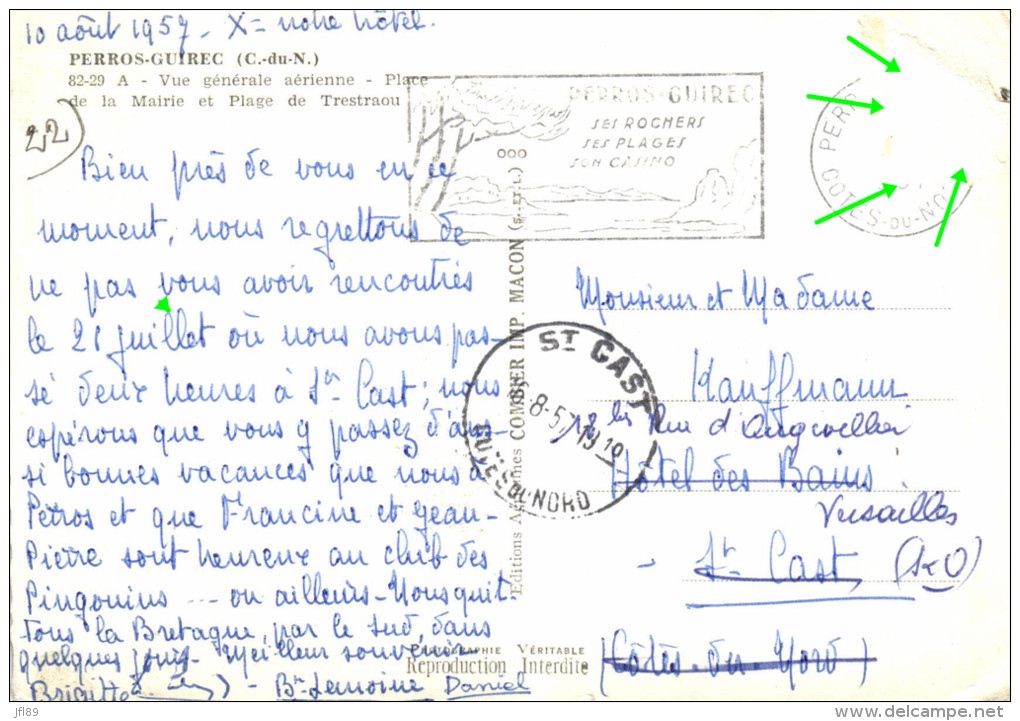 10 août 1957. X = notre hôtel.
PERROS-GUIREC (C.-du-N.)
82-29 A - Vue générale aérienne - Place
de la Mairie et Plage de Trestraou
22
Bien près de vous en ce
moment, nous regrettons de
ne pas vous avoir rencontrés
le 21 juillet où nous avons pas-
sé deux heures à St Cast ; nous
espérons que vous y passez d'aus-
si bonnes vacances que nous à
Perros et que Francine et Jean-
Pierre sont heureux au club des
Pingouins ... ou ailleurs - Nous quit-
tons la Bretagne, par le sud, dans
quelques jours - Meilleur souvenir
Brigitte - Lemoine Daniel
PERROS-GUIREC
SES ROCHERS
SES PLAGES
SON CASINO
PERR
COTES-DU-NO
Editions COMBIER IMP. MACON (S.-ET-L.)
ST CAST
8-57
COTES DU NORD
Monsieur et Madame
Kauffmann
18 bis Rue d'Angiviller
Hôtel des Bains
Versailles
- St Cast (S&O)
(Côtes du Nord)
PHOTOGRAPHIE VÉRITABLE
Reproduction Interdite
jf89
www.delcampe.net